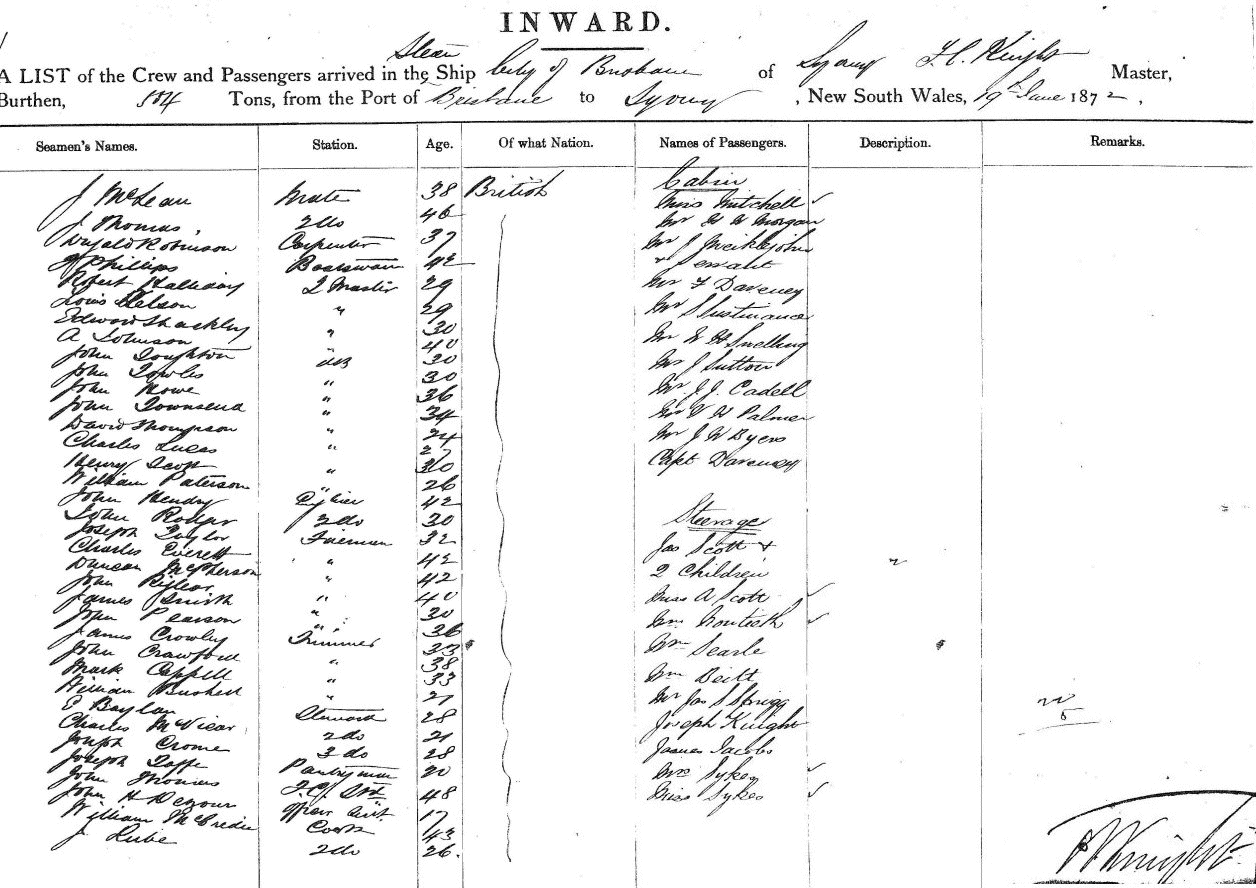 INWARD.
Steam
A LIST of the Crew and Passengers arrived in the Ship City of Brisbane of Sydney F.C. Knight Master,
Burthen, 504 Tons, from the Port of Brisbane to Sydney, New South Wales, 19th June 1872,
Seamen's Names. Station. Age. Of what Nation. Names of Passengers. Description. Remarks.
Cabin
J McLean Mate 38 British Miss Mitchell
J Thomas 2 do 46 Mr H H Morgan
Dugald Robinson Carpenter 37 Mr J Meiklejohn
J Phillips Boatswain 42 + Servant
Robert Halliday Q Master 29 Mr F Daveney
Louis Nelson " 29 Mr S Eustmance
Edward Shackley " 30
A Johnson " 40 Mr W H Snelling
John Loughton AB 30 Mr J Sutton
John Towles " 30
John Howe " 36 Mr J.J. Cadell
John Townsend " 34 Mr W H Palmer
David Thompson " 24
Charles Lucas " 27 Mr J W Dyers
Henry Scott " 30 Capt Daveney
William Paterson " 26
John Hendry 42
John Rodger 2 do 30 Steerage
Joseph Taylor Fireman 32
Charles Everett " 42 Jas Scott +
Duncan McPherson " 42 2 Children
John "
James Smith " 40 Miss A Scott
John Pearson " 30 Monteith
James Crowley Trimmer 36
John Crawford " 33 Wm Searle
Mark Cappell " 38 Wm Beitt
William Bushell " 33
E Baylan Steward 27 Mr Jas S Strigg
Charles McVicar 2 do 28 Joseph Knight
Joseph Crome 3 do 21
Joseph Taffe Pantryman 28 James Jacobs
John Thomas 20 Mrs Sykes
John H 48 Miss Sykes
William McCredie Cook 17
J Lube 2 do 43
26.
Knight